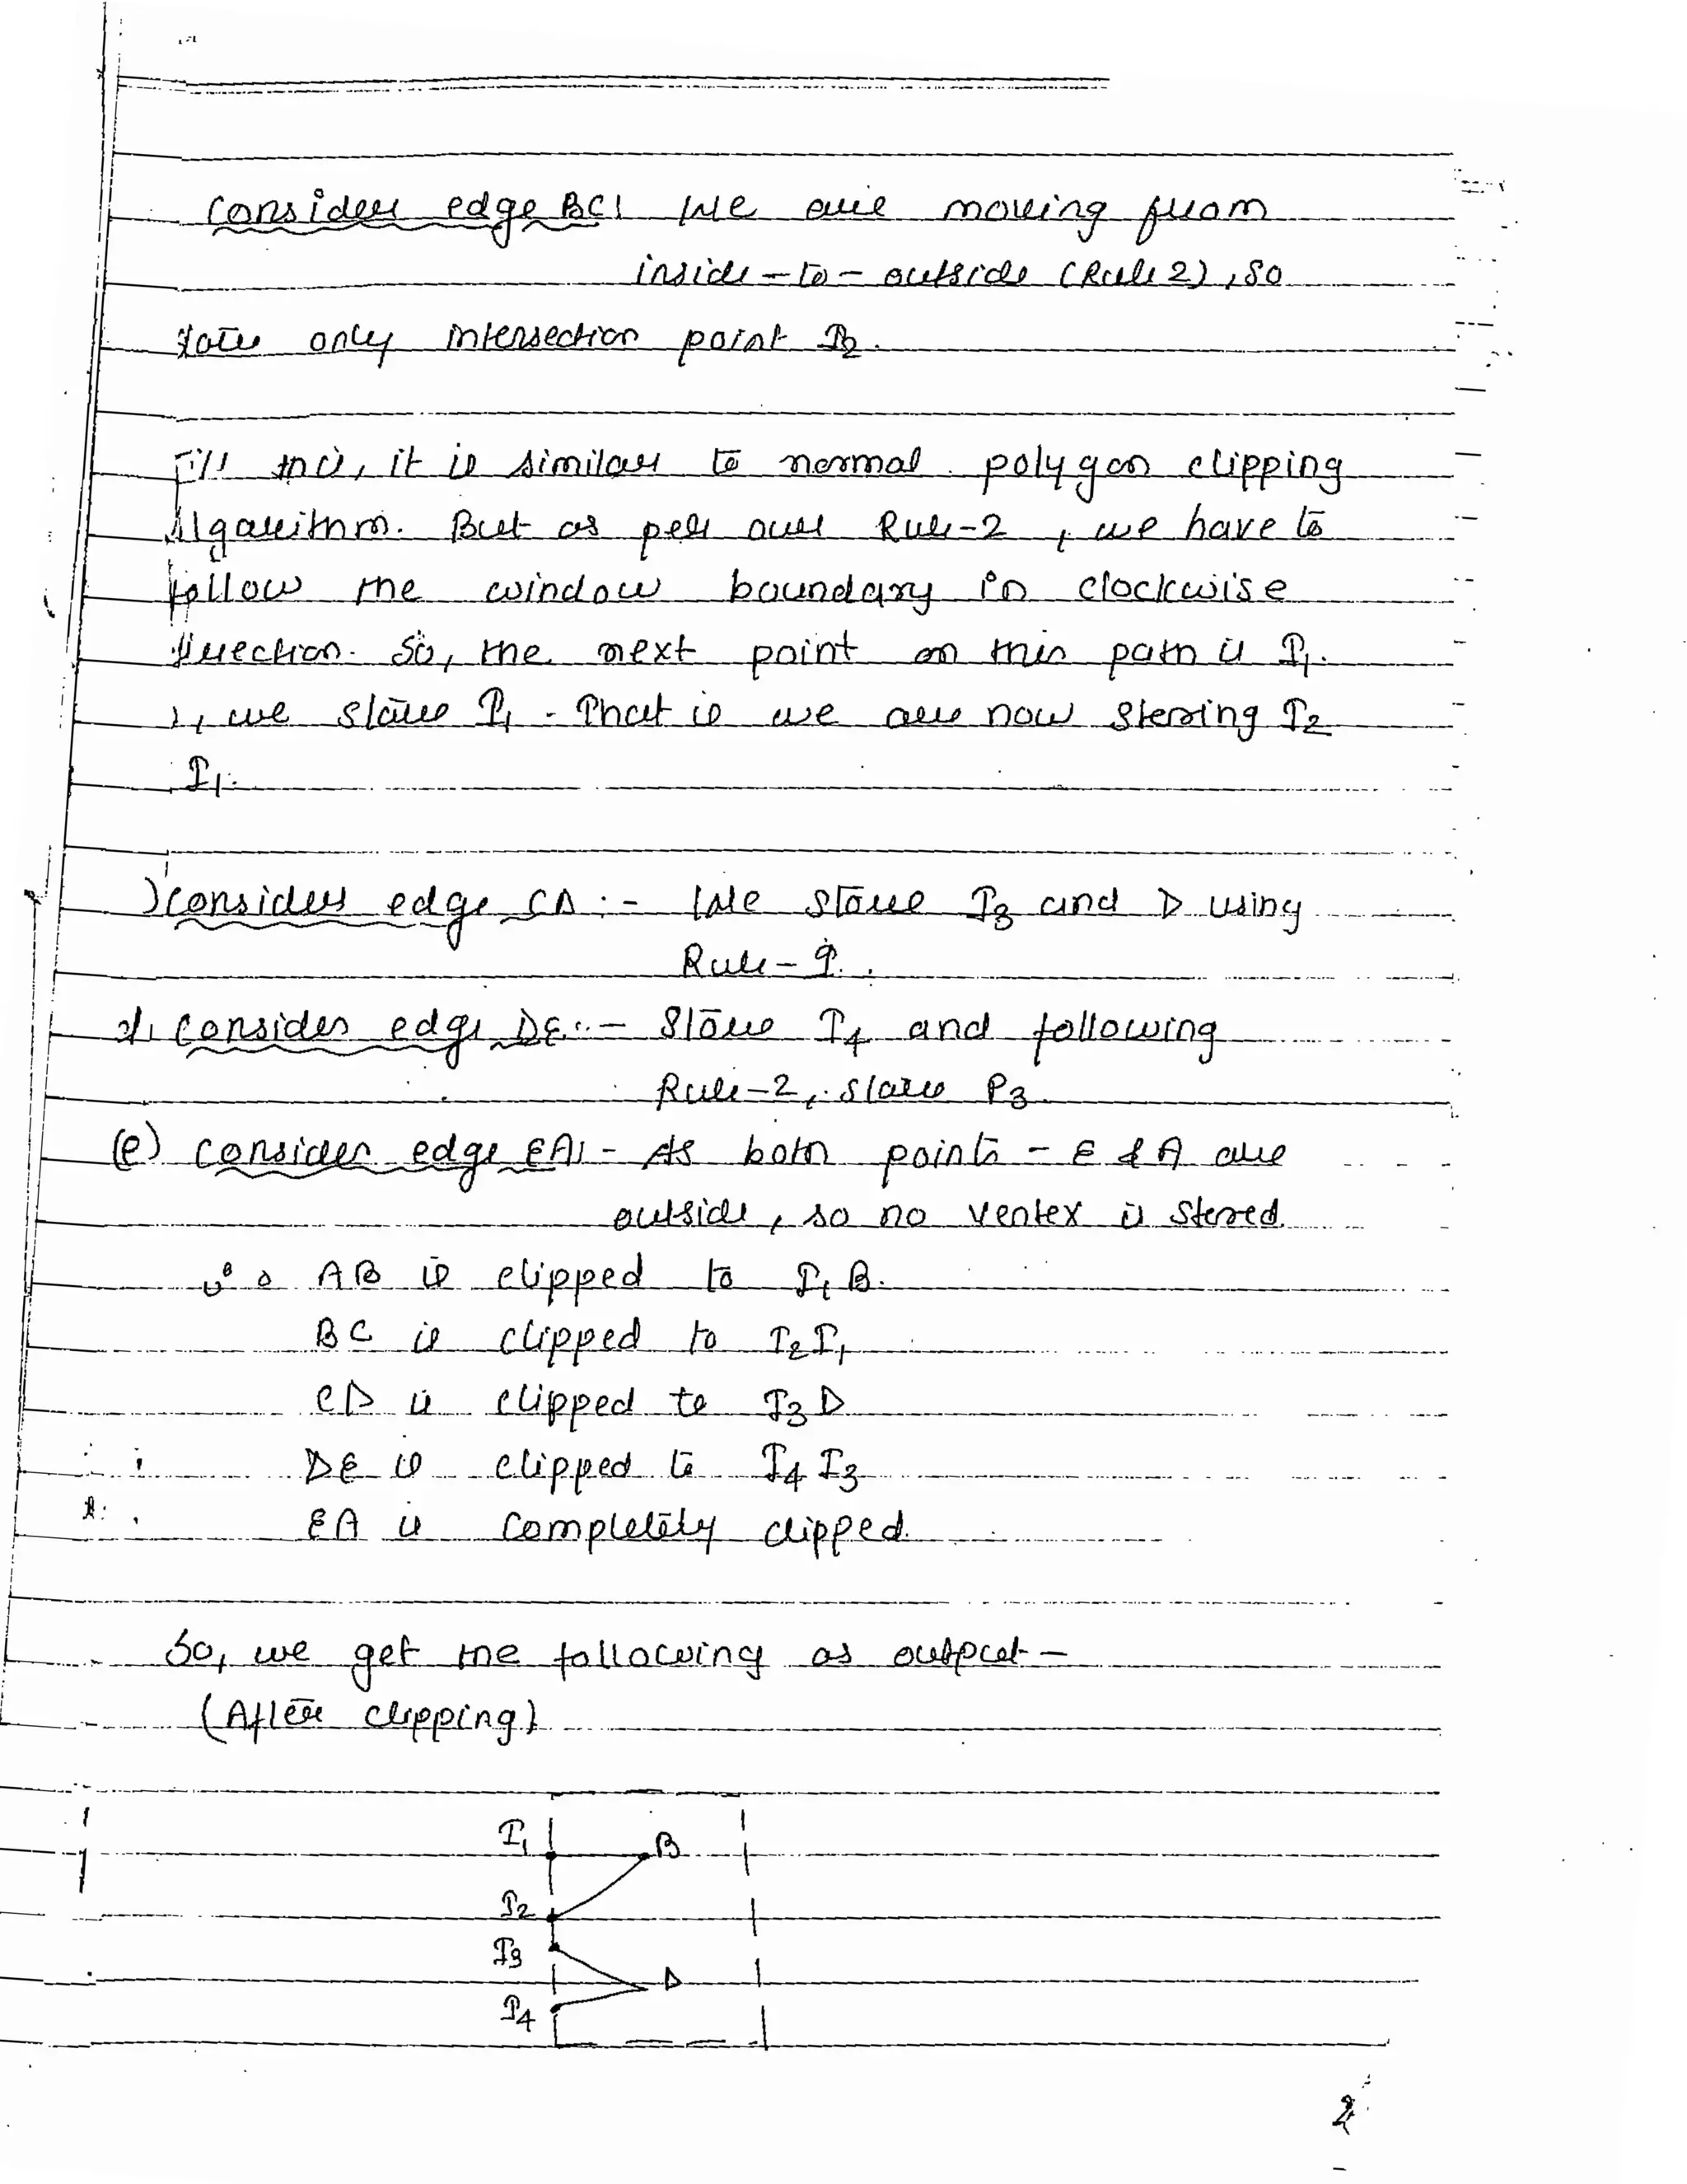 Consider edge BC! We are moving from
inside-to-outside (Rule 2), so
only intersection point I2.
Till this, it is similar to normal polygon clipping
algorithm. But as per our Rule-2, we have to
follow the window boundary in clockwise
direction. So, the next point on this path is I1.
we store I1. That is we are now storing I2
I1.
) Consider edge CD :- We store I3 and D using
Rule-1.
d) Consider edge DE :- Store I4 and following
Rule-2, store P3.
(e) Consider edge EA :- As both points - E & A are
outside, so no vertex is stored.
AB is clipped to I1 B.
BC is clipped to I2 I1
CD is clipped to I3 D
DE is clipped to I4 I3
EA is completely clipped.
So, we get the following as output-
(After clipping)
I1
B
I2
I3
D
I4